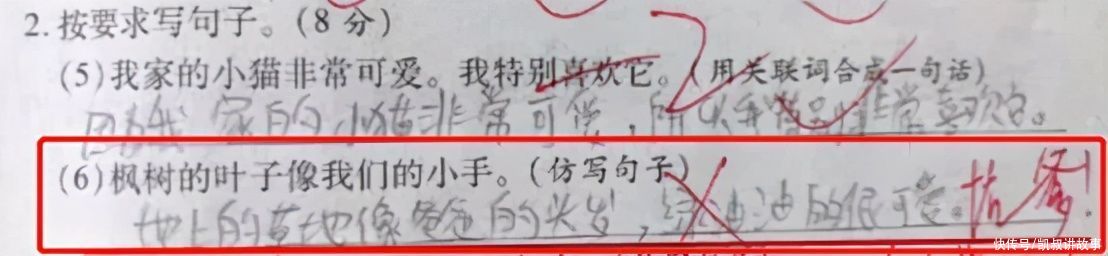 2.按要求写句子。(8分)
(5)我家的小猫非常可爱。我特别喜欢它。(用关联词合成一句话)
因为我家的小猫非常可爱,所以我特别非常喜欢它。
(6)枫树的叶子像我们的小手。(仿写句子)
地上的草地像爸爸的头发,绿油油的很可爱。
快传号/凯叔讲故事